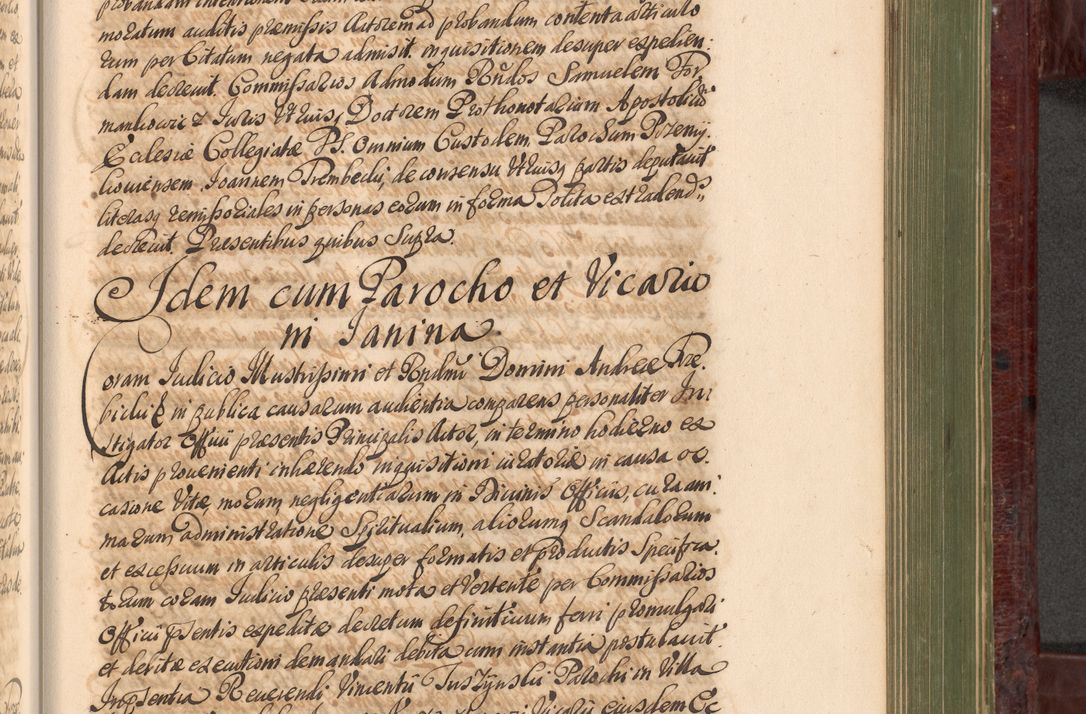 moratum auditis præmissis Actorem ad probandum contenta articulo
rum per Citatum negata admisit. inquisitionem desuper expedien:
dam decrevit. Commissarios Admodum Rndos Samuelem For
mankowicz Juris Utriusq Doctorem Prothonotarium Apostolicū
Ecclesiæ Collegiatæ PS. Omnium Custodem, Parochum Przemy:
koviensem. Joannem Trembecki, de consensu Utriusq partis deputavit
literasq remissoriales in personas eorum in forma Solita extradend:
decrevit. Præsentibus quibus Supra.
Idem cum Parocho et Vicario
in Janina.
Coram Judicio Illustrissimi et Rndmi Domini Andreæ Trze:
bicki E in publica causarum audientia comparens personaliter In:
stigator Officii præsentis Principalis Actor, in termino hodierno ex
Actis provenienti inhærendo inquisitioni juratoriæ in causa oc:
casione Vitæ, morum, negligentiarum in Divinis Officiis, cura ani:
marum administratione Spiritualium, aliorumq Scandalorum
et excessuum in articulis desuper formatis et productis Specifica:
torum coram Judicio præsenti mota et Vertente per Commissarios
Officii psentis expeditæ decretum definitivum ferri promulgari
et debitæ executioni demandari debita cum instantia postulavit.
In psentia Reverendi Vincentii Juszynski Parochi in Villa
Vicarii eiusdem Ec